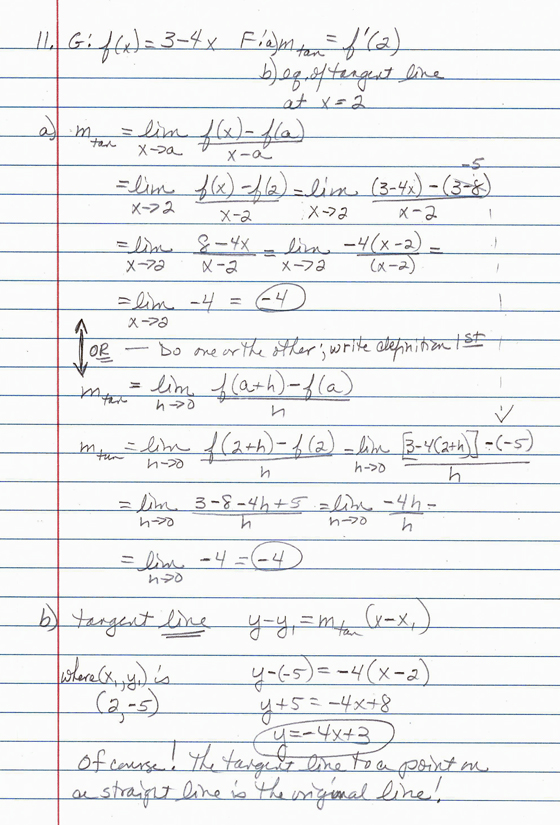 11. G: f(x) = 3-4x F: a) m_tan = f'(2)
b) eq. of tangent line
at x = 2
a) m_tan = lim x→a (f(x) - f(a))/(x-a)
= lim x→2 (f(x) - f(2))/(x-2) = lim x→2 ((3-4x) - (3-8))/(x-2) -5
= lim x→2 (8-4x)/(x-2) = lim x→2 (-4(x-2))/(x-2) =
= lim x→2 -4 = -4
OR — Do one or the other; write definition 1st
m_tan = lim h→0 (f(a+h) - f(a))/h
m_tan = lim h→0 (f(2+h) - f(2))/h = lim h→0 ([3-4(2+h)] - (-5))/h
= lim h→0 (3-8-4h+5)/h = lim h→0 (-4h)/h =
= lim h→0 -4 = -4
b) tangent line y-y₁ = m_tan (x-x₁)
where (x₁, y₁) is y-(-5) = -4(x-2)
(2,-5) y+5 = -4x+8
y = -4x+3
Of course! The tangent line to a point on
a straight line is the original line!